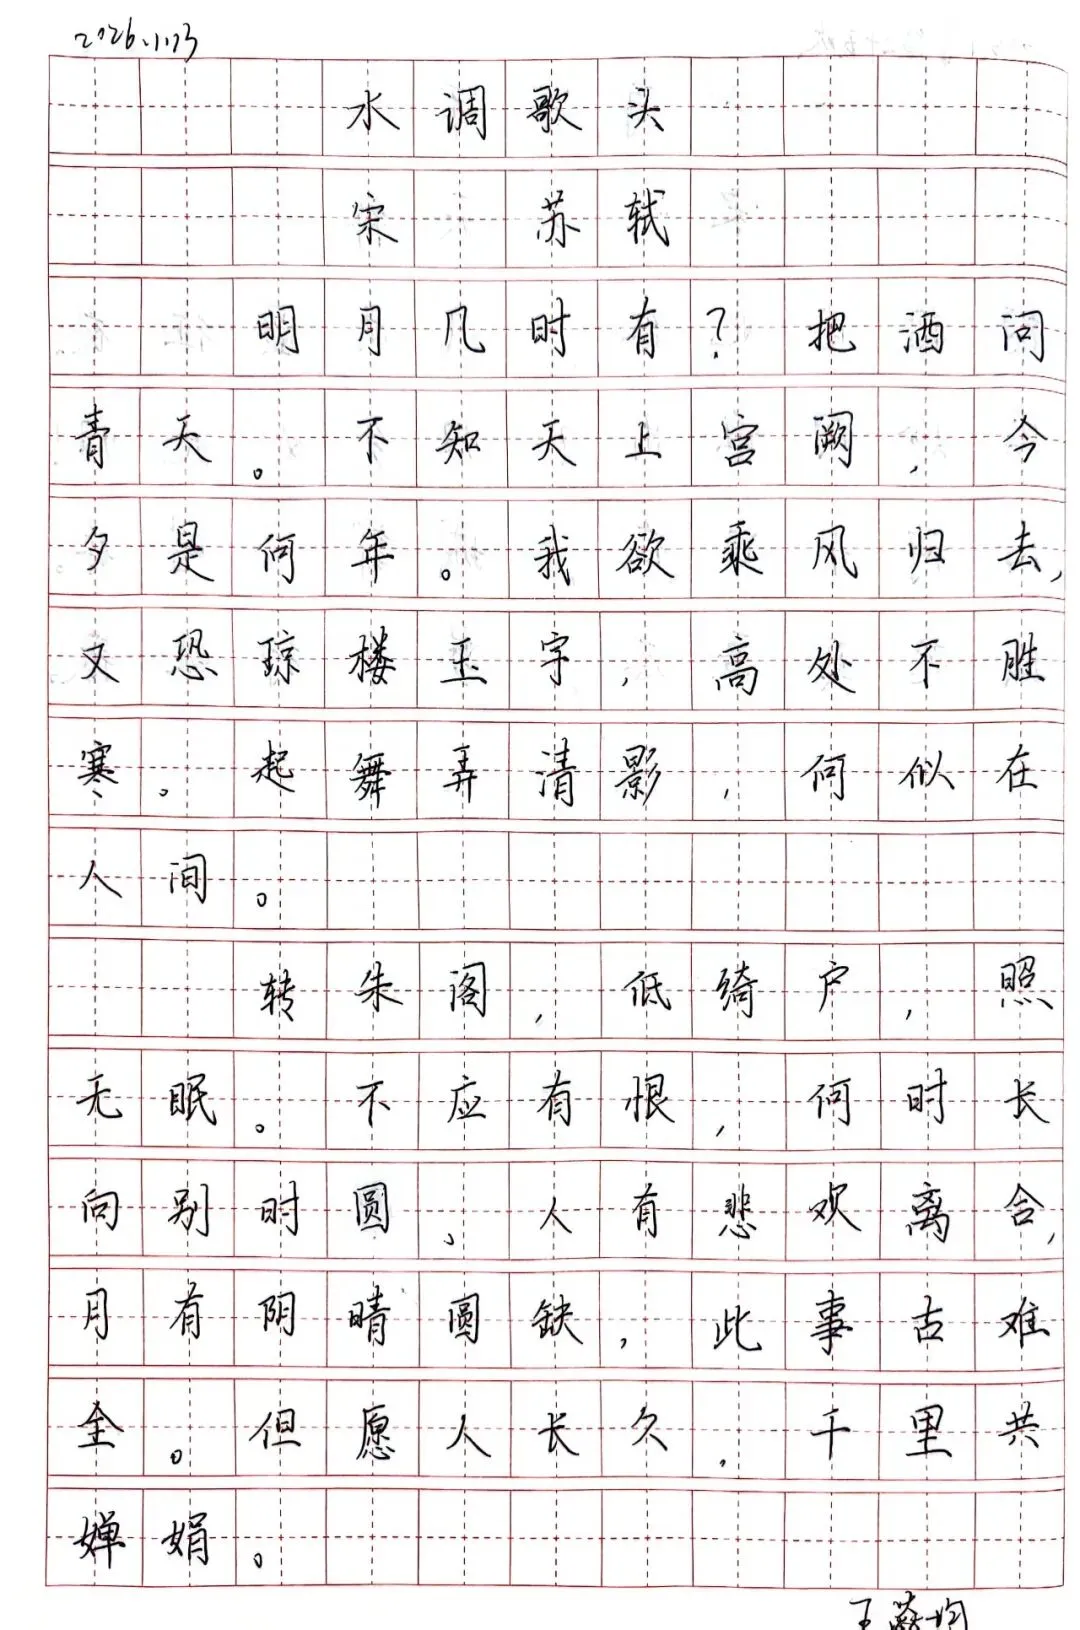 水调歌头
宋 苏轼
明月几时有？把酒问
青天。不知天上宫阙，今
夕是何年。我欲乘风归去，
又恐琼楼玉宇，高处不胜
寒。起舞弄清影，何似在
人间。
转朱阁，低绮户，照
无眠。不应有恨，何时长
向别时圆，人有悲欢离合，
月有阴晴圆缺，此事古难
全。但愿人长久，千里共
婵娟。